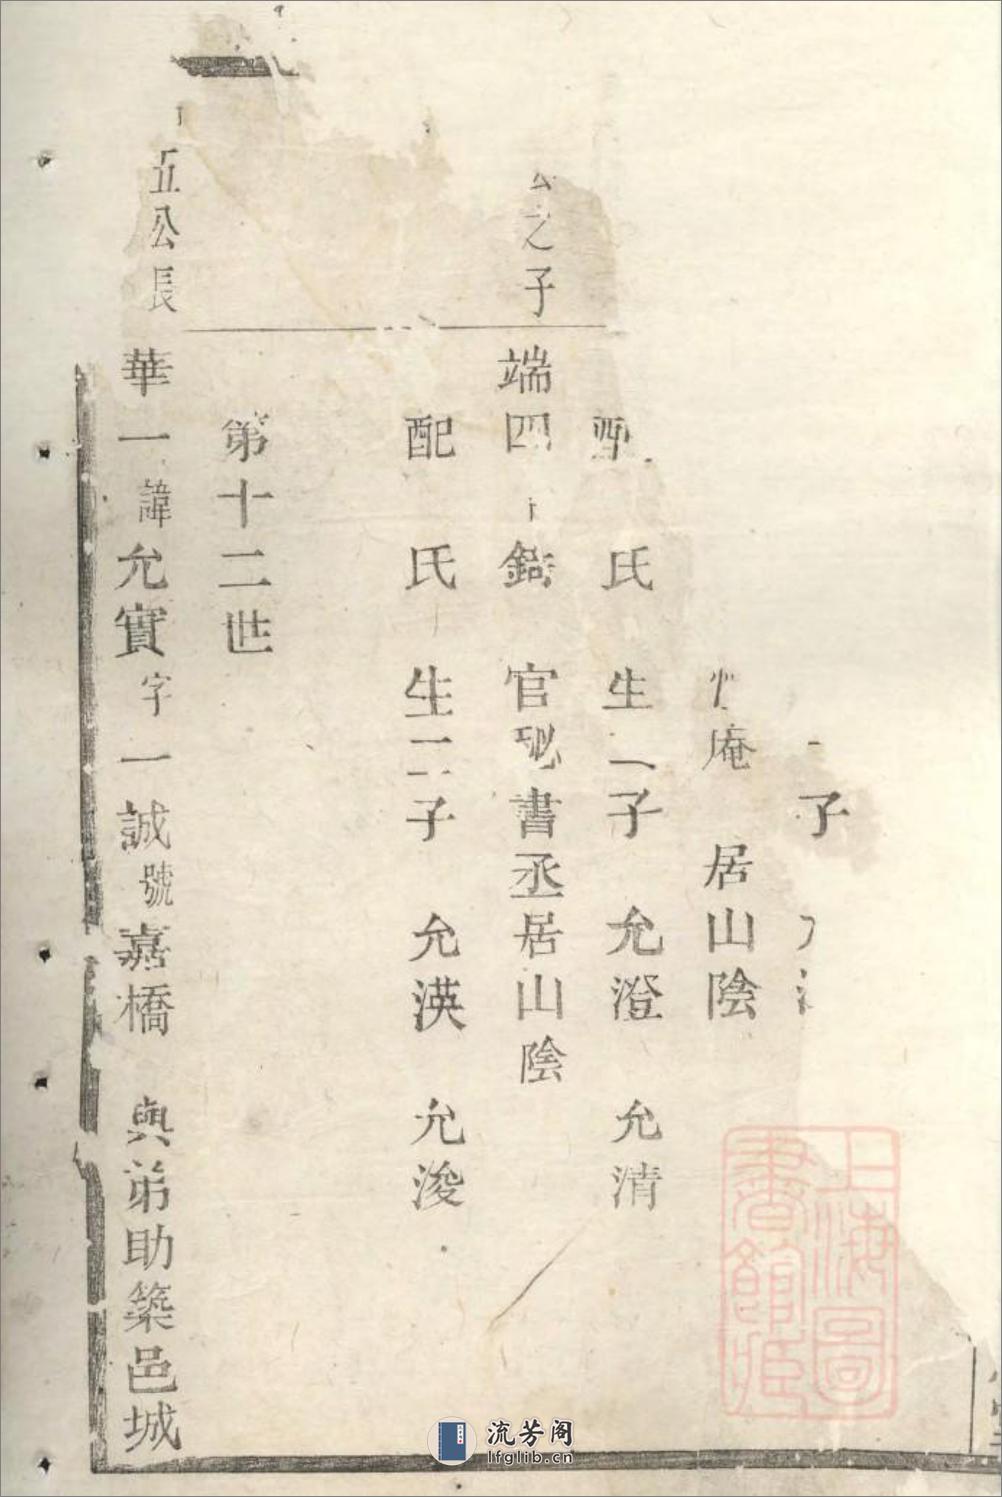 子
庵 居山陰
配 氏 生一子 允澄 允清
之子
端四 官秘書丞居山陰
配 氏 生二子 允渶 允浚
第十二世
五公長
華一諱允實字一誠號嘉橋 與弟助築邑城
上海圖
書館藏
流芳阁
lfglib.cn